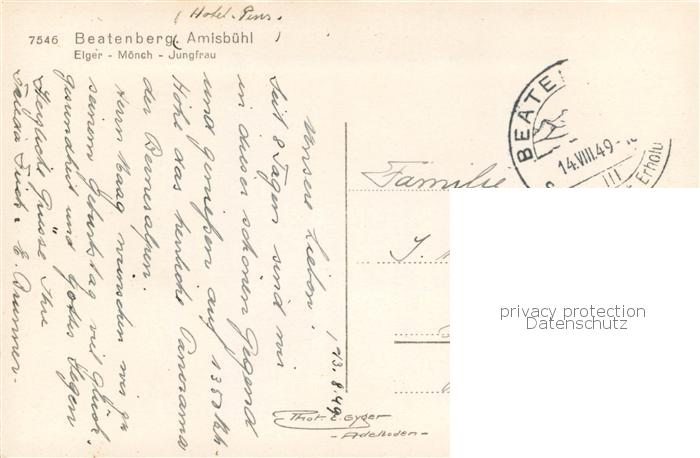 ( Hotel-Pens.
7546 Beatenberg, Amisbühl )
Eiger - Mönch - Jungfrau
13.8.49
Unsere Lieben!
Seit 8 Tagen sind wir
in dieser schönen Gegend
und genießen auf 1350 M.
Höhe das herrliche Panorama
der Berneralpen.
Herrn Maag wünschen wir zu
seinem Geburtstag viel Glück.
Gesundheit und Gottes Segen
Herzliche Grüsse Ihre
E. Brunner.
Phot. E. Gyger
- Adelboden -
BEATE
14.VIII.49-
Erholu
Familie
J.
privacy protection
Datenschutz